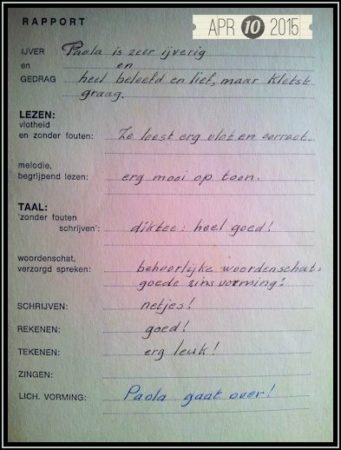 APR 10 2015
RAPPORT
IJVER Paola is zeer ijverig
en en
GEDRAG heel beleefd en lief, maar kletst
graag.
LEZEN:
vlotheid
en zonder fouten: Ze leest erg vlot en correct.
melodie,
begrijpend lezen: erg mooi op toon.
TAAL:
'zonder fouten
schrijven': diktee: heel goed!
woordenschat, behoorlijke woordenschat,
verzorgd spreken: goede zinsvorming!
SCHRIJVEN: netjes!
REKENEN: goed!
TEKENEN: erg leuk!
ZINGEN:
LICH. VORMING: Paola gaat over!